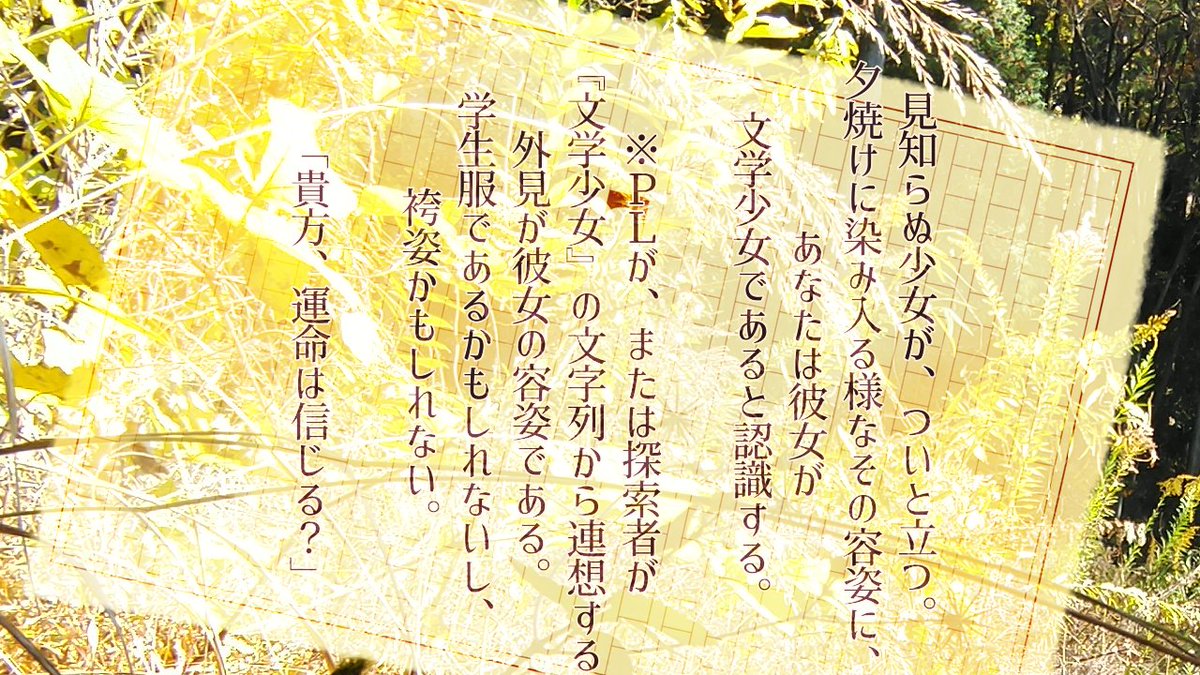 見知らぬ少女が、ついと立つ。
夕焼けに染み入る様なその容姿に、
あなたは彼女が
文学少女であると認識する。
※PLが、または探索者が
『文学少女』の文字列から連想する
外見が彼女の容姿である。
学生服であるかもしれないし、
袴姿かもしれない。
「貴方、運命は信じる？」